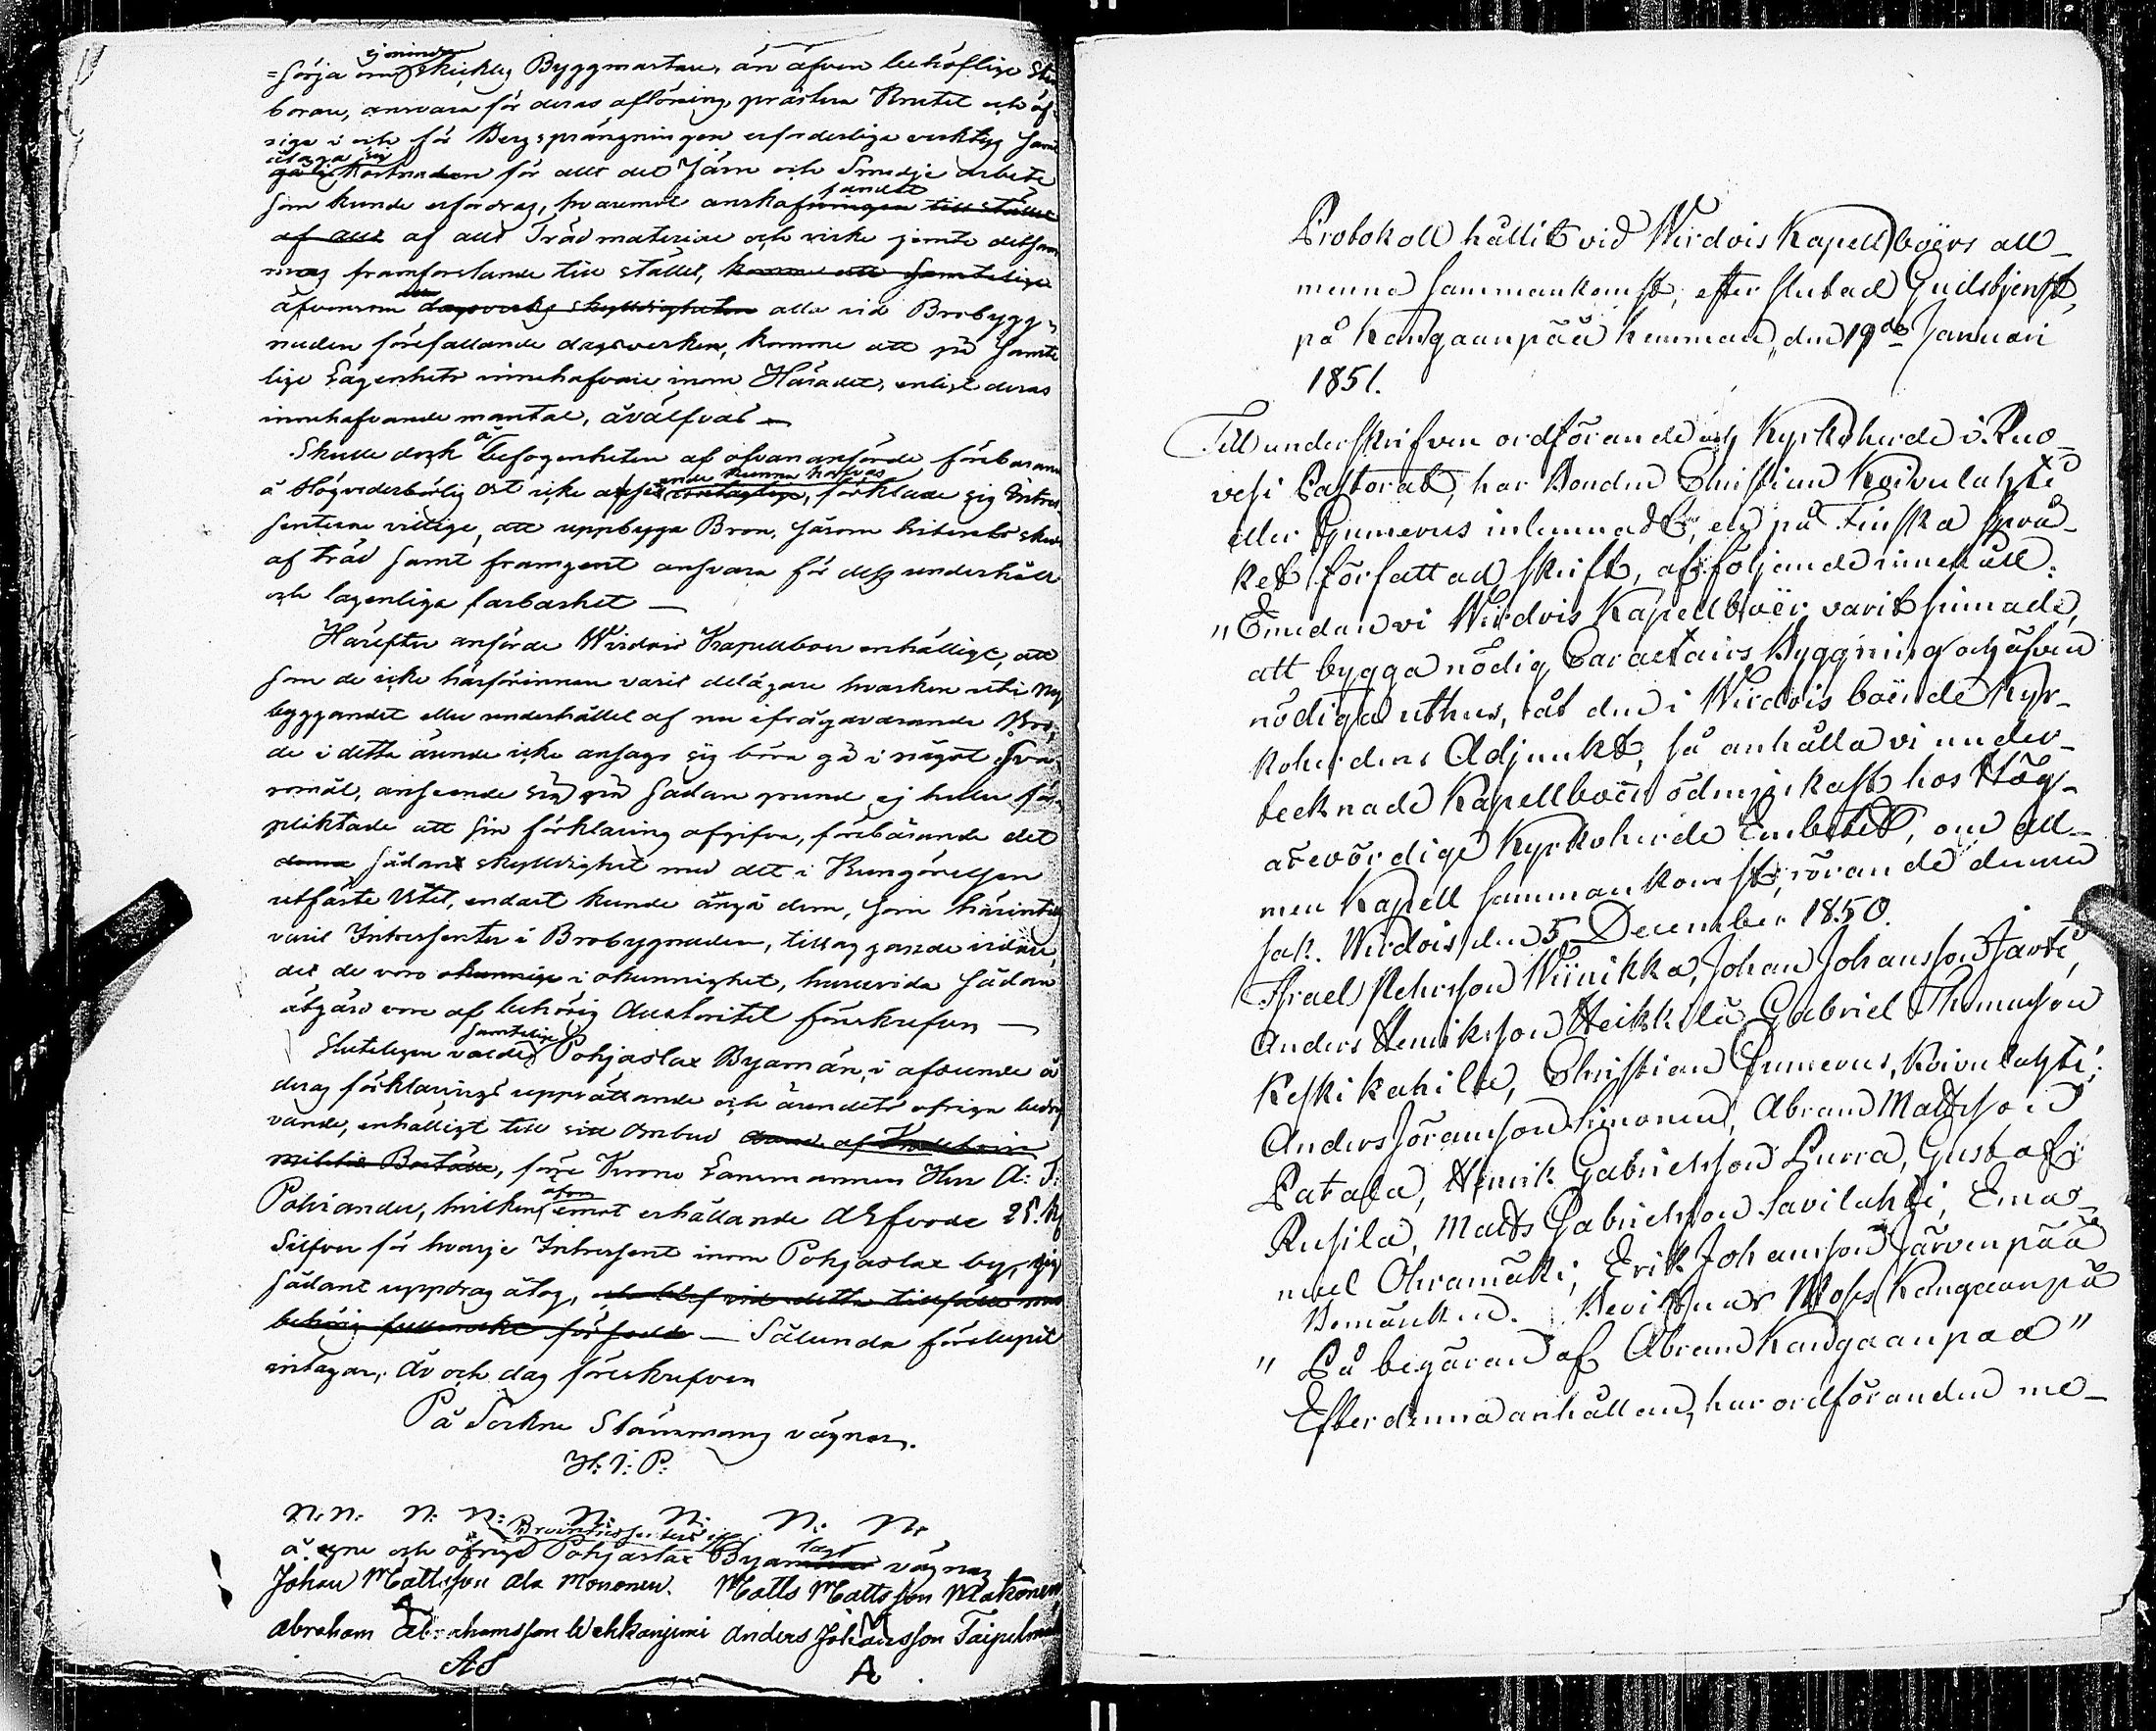 ej mindre
=sörja om skicklig Byggmästare, än äfven behöflige Sten
borare, ansvara för deras aflöning, prästera Krutet och öf-
riga i och för Bergsprängningen erforderliga verktyg samt
åtaga sig
gälda kostnaden för allt det Järn och Smedje arbete
fandet
som kunde erfordras, hvaremot anskaffningen till stället
af allt af allt Trädmateriale och virke jemte det samma
mas framforslande till stället, komme att samtelige
äfvensom dagsverks skyldigheten alla vid Brobygg-
naden förefallande dagsverken, komme att på Samte
lige Lägenhets innehafvare inom Häradet, enligt deras
innehafvande mantal, åvälfvas —
Skulle dock å befogenheten af ofvananförde förebärann
ende kunna hafvas
å Högvederbörlig Ort icke afseende, förklarade sig Intres
senterne villige, att uppbygga Bron, såsom hitintils skedt
af träd samt framgent ansvara för dess underhåll
och lagenliga farbarhet —
Härefter anförde Wirdois Kapellboer enhälligt, att
som de icke härförinnan varit delägare hvarken uti ny
byggandet eller underhållet af nu ifrågavarande Bro,
de i detta ärende icke ansågo sig böra gå i något Sva-
romål, anseende sig på sådan grund ej heller för-
pliktade att sin förklaring afgifva, förebärande det
denna sådant skyldighet med det i Kungörelsen
utfäste Vitet, endast kunde angå dem, som härintill
varit Intressenter i Brobygnaden, tilläggande vidare,
det de voro okunnige i okunnighet, huruvida sådan
åtgärd vore af behörig Auktoritet föreskrefven —
samtelige
Slutligen valde Pohjaslax Byamän, i afseende å
deras förklarings upprättande och ärendets öfriga bedrif
vande, enhälligt till sitt Ombud
Militie Boställe, förre Krono Länsmannen Herr A: J:
äfven
Polviander, hvilken emot erhållande Arfvode 25. k
Silfver för hvarje Intressent inom Pohjaslax by, sig
sådant uppdrag åtog, och blef vid detta tillfälle med
behörig fullmakt försedd — Sålunda förelupit
intagen, År och dag föreskrefven
På Sockne Stämmans vägnar.
H: J: P:
N: N: N: N: N: N: N: N:
Brointressenters i
å egne och öfrige Pohjaslax Byamäns vägnar
lags
Johan Mattsson Ala Mononen. Matts Mattsson Makonen,
Abraham Abrahamsson Wehkanjemi Anders Johansson Taipelmä
AS A
Protokoll hållit vid Wirdois Kapellboërs all-
menna sammankomst, efter slutad Gudstjenst,
på Kangaanpää hemman, den 19de Januari
1851.
Till underskrifven ordförande och Kyrkoherde i Ruo-
vesi Pastorat, har Bonden Christian Koivulahti
eller Gumerus inlemnadt, en på Finska språ-
ket författad skrift, af följande innehåll:
"Emedan vi Wirdois Kapellboër varit sinnade,
att bygga nödig Caractairs Byggning och äfven
nödiga uthus, åt den i Wirdois boende Kyr-
koherdens Adjunkt, så anhålla vi under-
tecknade Kapellboër ödmjukast hos Hög-
ärevördige Kyrkoherde Embetet, om all-
men Kapell sammankomst, rörande denna
sak. Wirdois den 5 December 1850.
Israel Pehrsson Wiinikka, Johan Johansson Jäste,
Anders Henriksson Heikkilä, Gabriel Thomasson
Keskikahila, Christian Gumerus, Koivulahti;
Anders Göransson Simonen, Abram Mattsson
Patala, Henrik Gabrielsson Purra, Gustaf
Rusila, Matts Gabrielsson Savilahti, Ema-
nuel Ohramäki, Erik Johansson Järvenpää
Bomärken. Bevittnar Moses Kangaanpä
" På begäran af Abram Kangaanpaa"
Efter denna anhållan, har ordföranden me-